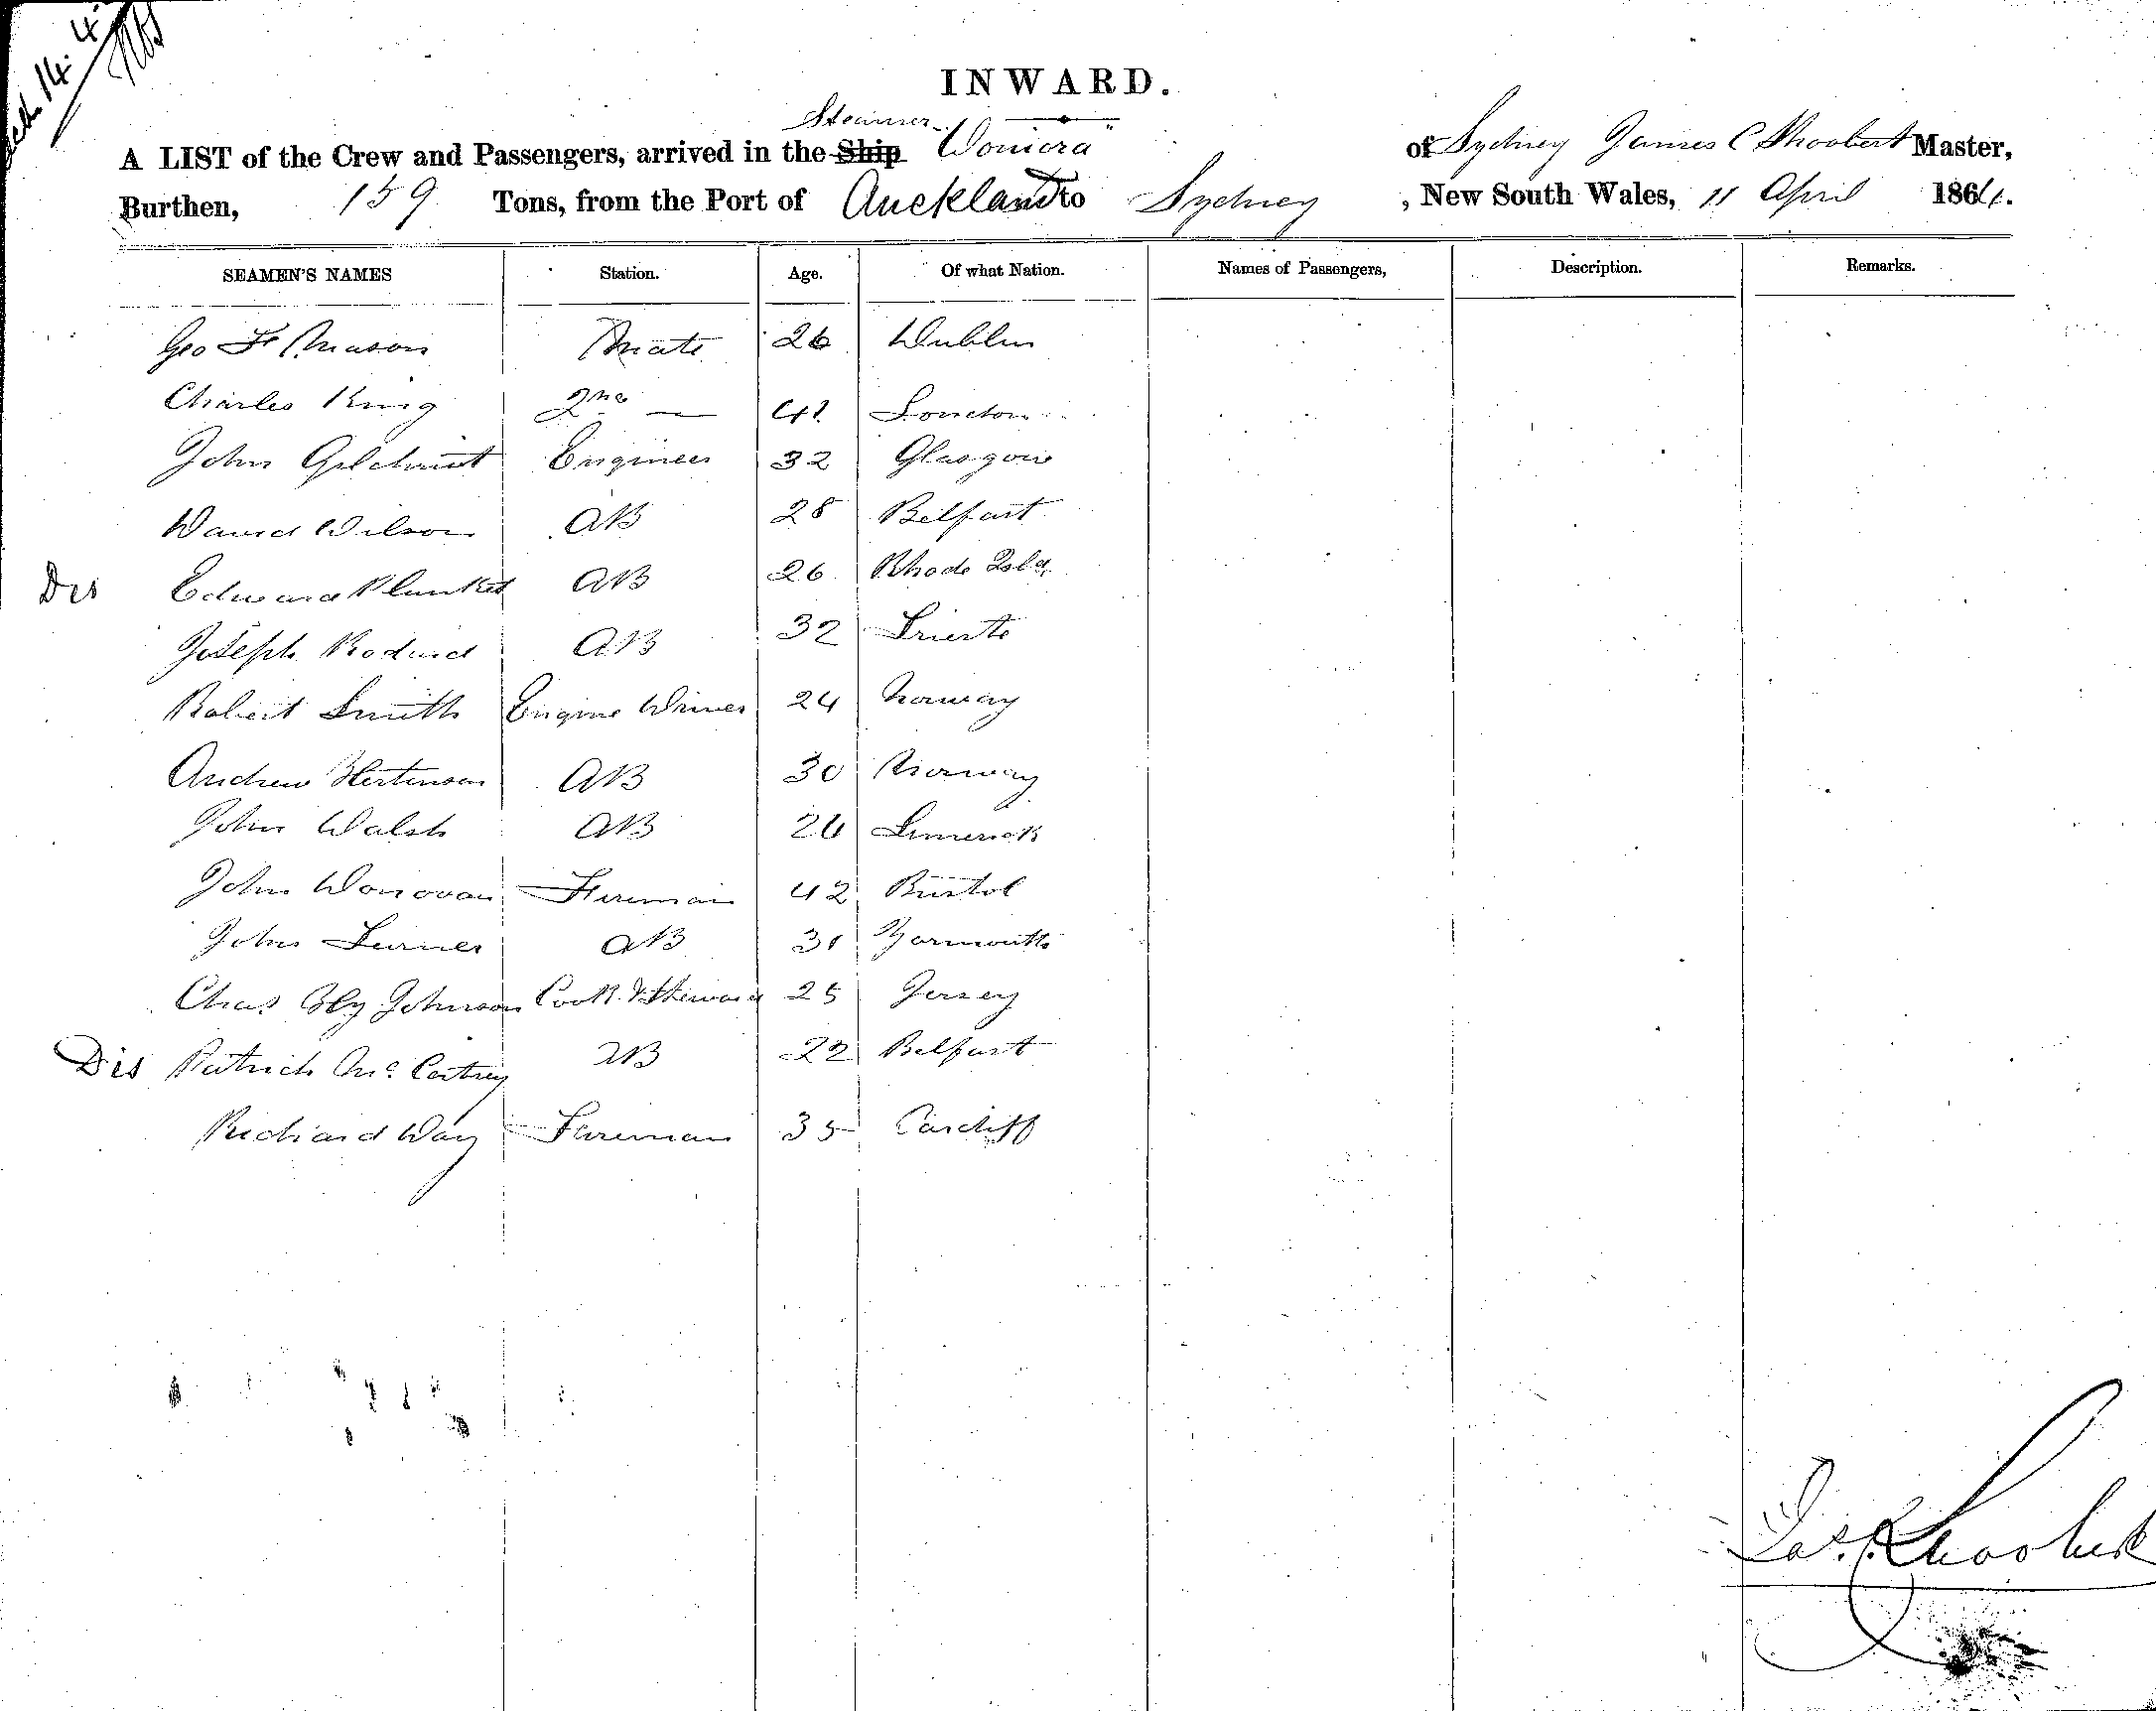 14. 4.
INWARD.
Steamer
A LIST of the Crew and Passengers, arrived in the Ship "Woniora" of Sydney James C Shoobert Master,
Burthen, 159 Tons, from the Port of Auckland to Sydney, New South Wales, 11 April 1864.
SEAMEN'S NAMES Station. Age. Of what Nation. Names of Passengers, Description. Remarks.
Geo F Mason Mate 26 Dublin
Charles King 2nd — 41 London
John Gilchrist Engineer 32 Glasgow
David Wilson AB 28 Belfast
Dis Edward Plunket AB 26 Rhode Isld
Joseph AB 32 Trieste
Robert Smith Engine Driver 24 Norway
Andrew AB 30 Norway
John Walsh AB 26 Limerick
John Donovan Fireman 42 Bristol
John Turner AB 31 Yarmouth
Chas Hy Johnson Cook & Steward 25 Jersey
Dis Patrick Mc Cartney AB 22 Belfast
Richard Day Fireman 35 Cardiff
Jas. C Shoobert